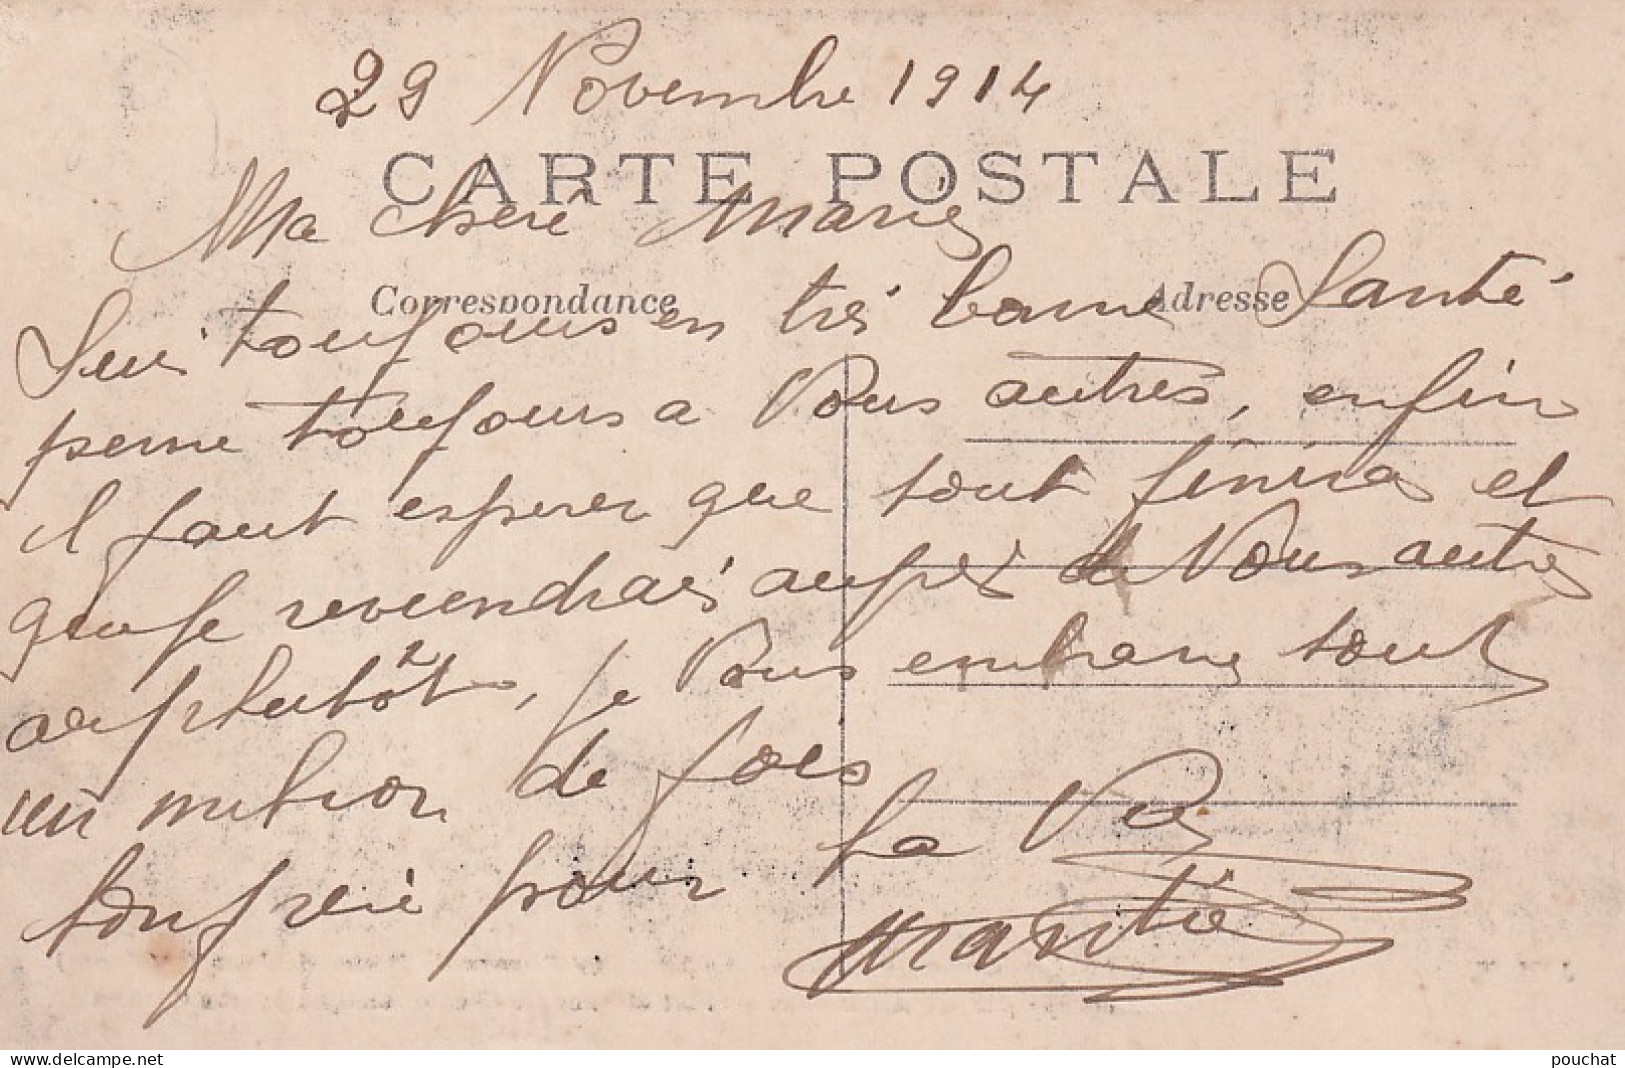 29 Novembre 1914
CARTE POSTALE
Ma chere Marie
Correspondance
Adresse
Suis toujours en très bonne Santé
pense toujours a Vous autres, enfin
il faut esperer que tout finira et
que je reviendrais auprès de Vous autres
au plutôt, je Vous embrasse tout
un milion de fois
ton frere pour la Vie
delcampe.net
pouchat